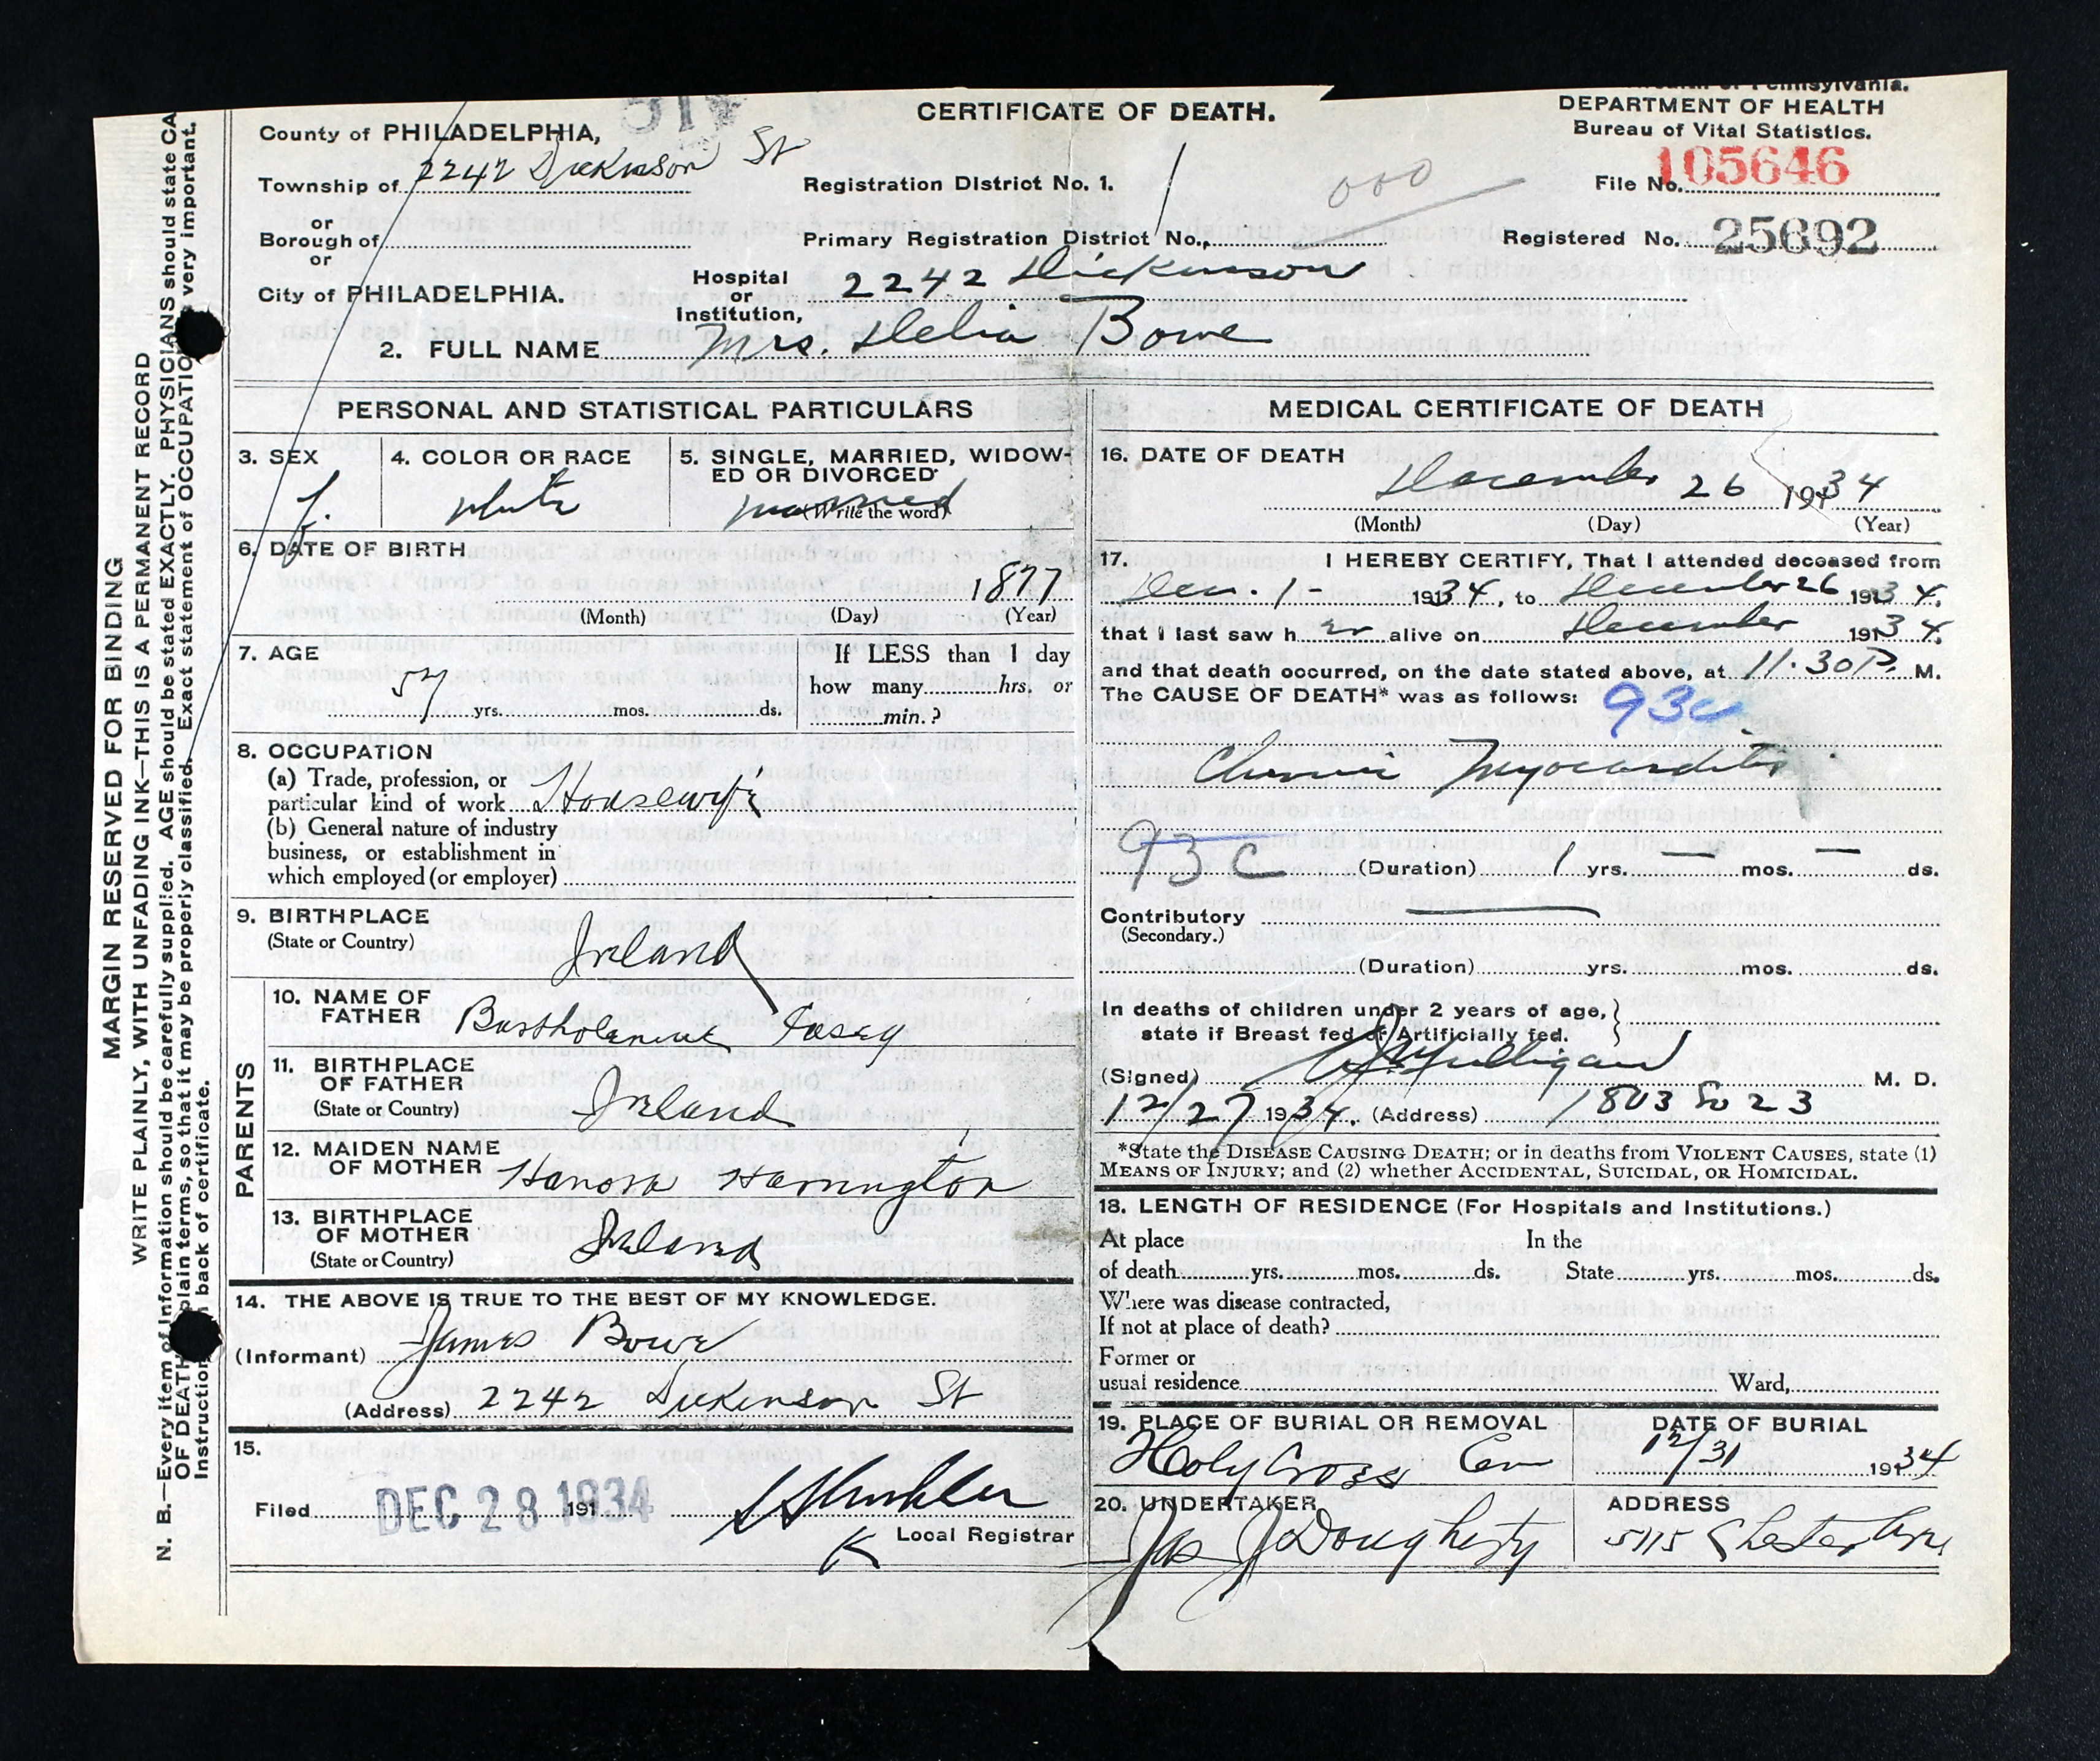 CERTIFICATE OF DEATH.
of Pennsylvania.
DEPARTMENT OF HEALTH
Bureau of Vital Statistics.
County of PHILADELPHIA,
2242 Dickinson St
Township of
or
Borough of
or
City of PHILADELPHIA.
Registration District No. 1.
000
File No. 105646
Primary Registration District No.,
Registered No. 25692
Hospital or Institution, 2242 Dickinson
2. FULL NAME Mrs. Delia Bowe
MARGIN RESERVED FOR BINDING
WRITE PLAINLY, WITH UNFADING INK—THIS IS A PERMANENT RECORD
N. B.—Every item of information should be carefully supplied. AGE should be stated EXACTLY. PHYSICIANS should state CA
OF DEATH plain terms, so that it may be properly classified. Exact statement of OCCUPATION very important.
Instruction back of certificate.
PERSONAL AND STATISTICAL PARTICULARS
3. SEX
f.
4. COLOR OR RACE
White
5. SINGLE, MARRIED, WIDOW-
ED OR DIVORCED
married
(Write the word)
6. DATE OF BIRTH
1877
(Month) (Day) (Year)
7. AGE
57 yrs. mos. ds.
If LESS than 1 day
how many hrs. or
min.?
8. OCCUPATION
(a) Trade, profession, or
particular kind of work Housewife
(b) General nature of industry
business, or establishment in
which employed (or employer)
9. BIRTHPLACE
(State or Country)
Ireland
PARENTS
10. NAME OF
FATHER Bartholemew Casey
11. BIRTHPLACE
OF FATHER
(State or Country) Ireland
12. MAIDEN NAME
OF MOTHER Hanora Harrington
13. BIRTHPLACE
OF MOTHER
(State or Country) Ireland
14. THE ABOVE IS TRUE TO THE BEST OF MY KNOWLEDGE.
(Informant) James Bowe
(Address) 2242 Dickinson St
15.
Filed DEC 28 1934 191
K Local Registrar
MEDICAL CERTIFICATE OF DEATH
16. DATE OF DEATH
December 26 1934
(Month) (Day) (Year)
17. I HEREBY CERTIFY, That I attended deceased from
Dec. 1 - 1934, to December 26 1934,
that I last saw her alive on December 1934,
and that death occurred, on the date stated above, at 11.30 P. M.
The CAUSE OF DEATH* was as follows: 93c
Chronic Myocarditis
93c (Duration) 1 yrs. — mos. — ds.
Contributory —
(Secondary.)
(Duration) yrs. mos. ds.
In deaths of children under 2 years of age,
state if Breast fed or Artificially fed.
(Signed) Mulligan M. D.
12/27 1934. (Address) 1803 So 23
*State the DISEASE CAUSING DEATH; or in deaths from VIOLENT CAUSES, state (1)
MEANS OF INJURY; and (2) whether ACCIDENTAL, SUICIDAL, OR HOMICIDAL.
18. LENGTH OF RESIDENCE (For Hospitals and Institutions.)
At place In the
of death yrs. mos. ds. State yrs. mos. ds.
Where was disease contracted,
If not at place of death?
Former or
usual residence Ward,
19. PLACE OF BURIAL OR REMOVAL
Holy Cross Cem
DATE OF BURIAL
12/31 1934
20. UNDERTAKER
Jas J Dougherty
ADDRESS
5115 Chester Ave